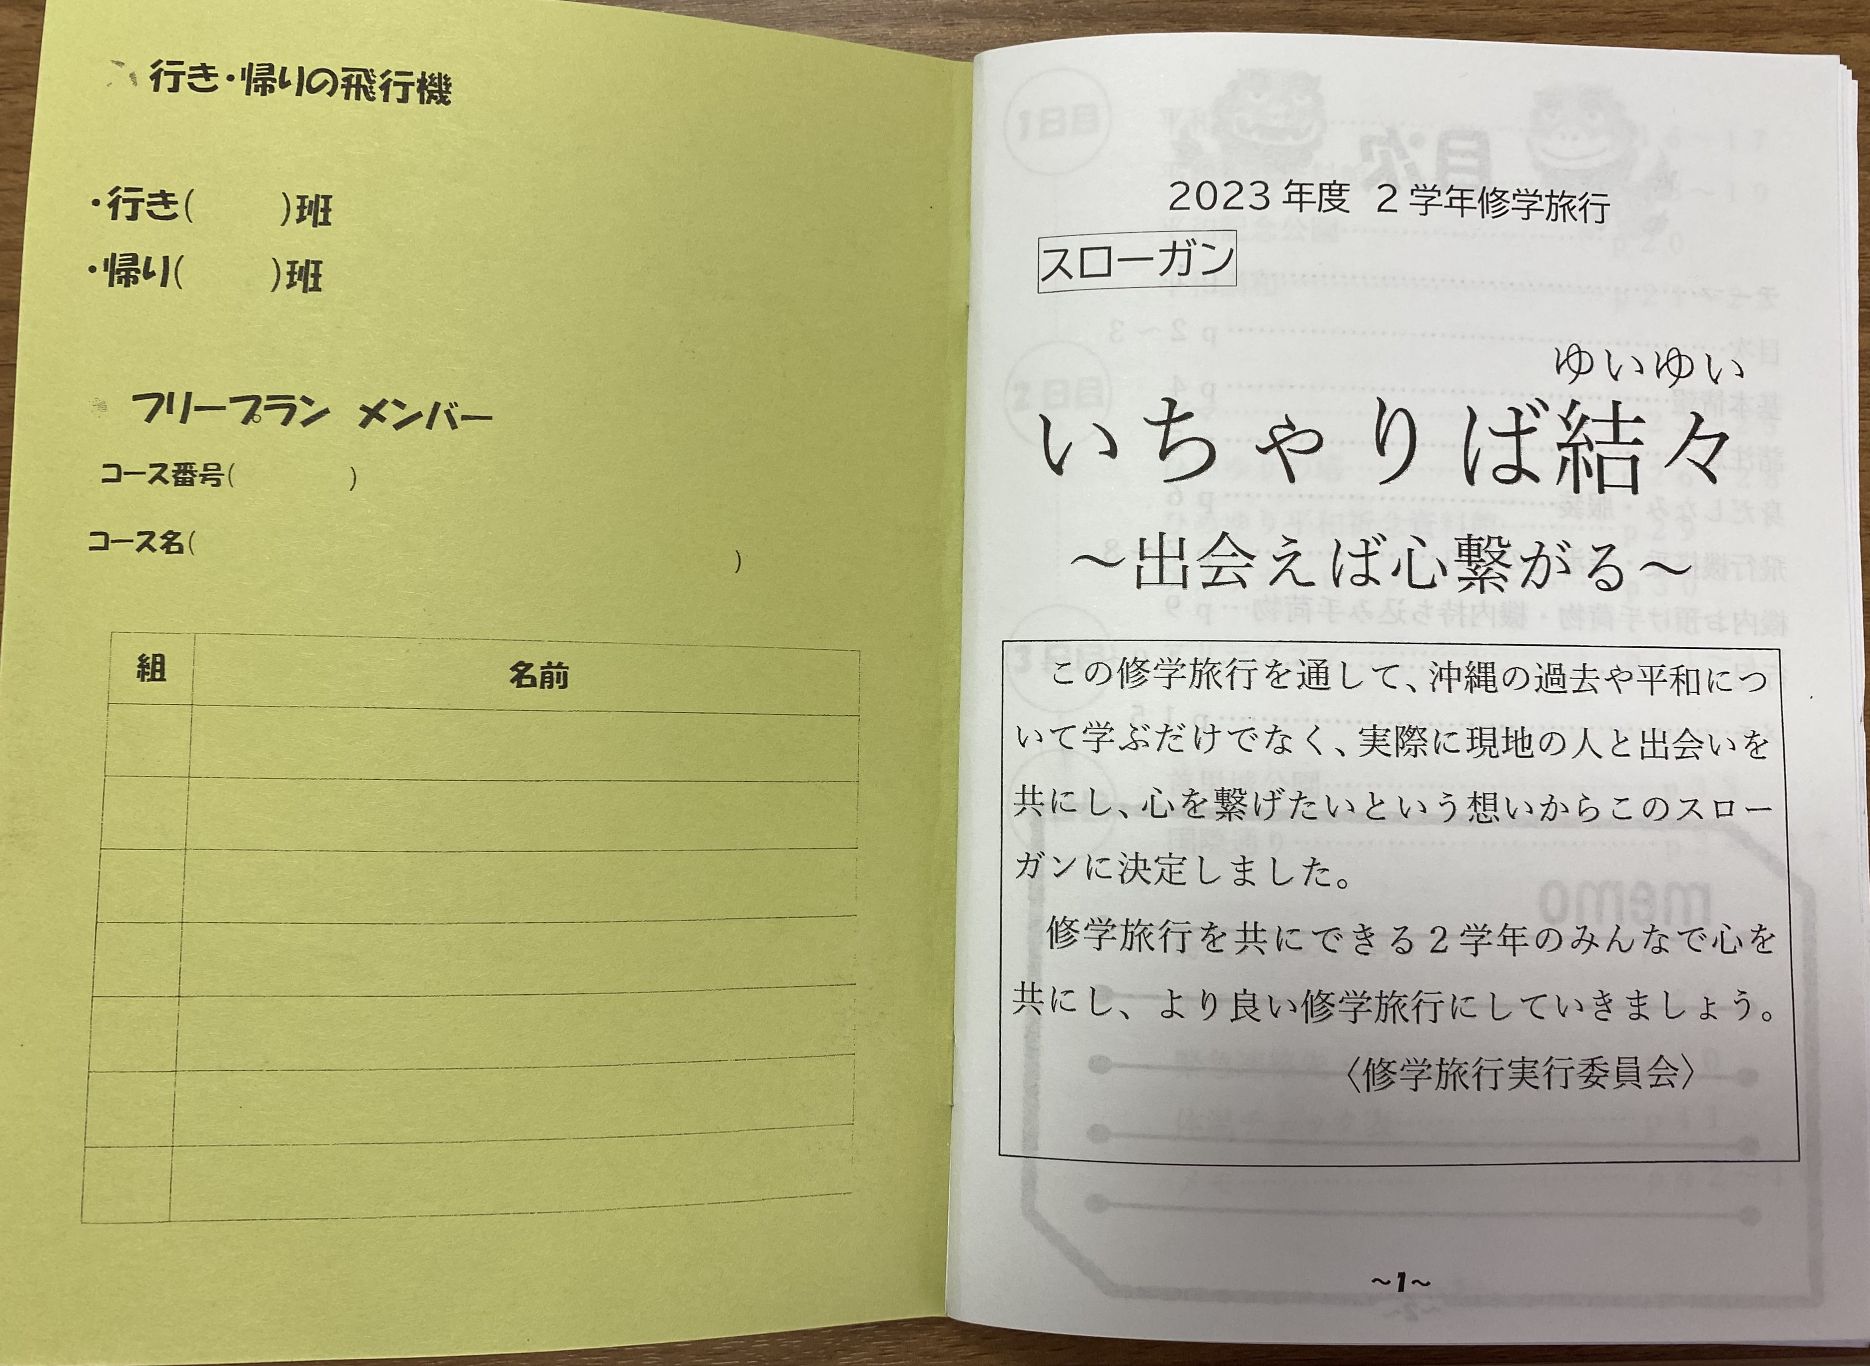 行き・帰りの飛行機
・行き(　　　)班
・帰り(　　　)班
フリープラン メンバー
コース番号(　　　　)
コース名(　　　　　　　　　　)
組 名前
2023年度 2学年修学旅行
スローガン
ゆいゆい
いちゃりば結々
～出会えば心繋がる～
この修学旅行を通して、沖縄の過去や平和につ
いて学ぶだけでなく、実際に現地の人と出会いを
共にし、心を繋げたいという想いからこのスロー
ガンに決定しました。
修学旅行を共にできる2学年のみんなで心を
共にし、より良い修学旅行にしていきましょう。
〈修学旅行実行委員会〉
～1～